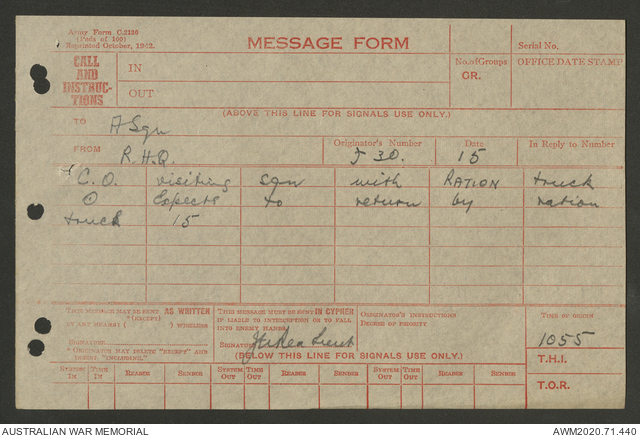 Army Form C.2136
(Pads of 100)
Reprinted October, 1942.
MESSAGE FORM
Serial No.
CALL AND INSTRUC-TIONS
IN
OUT
No. of Groups
GR.
OFFICE DATE STAMP
(ABOVE THIS LINE FOR SIGNALS USE ONLY.)
TO A Sqn
FROM R.H.Q.
Originator's Number
J 30.
Date
15
In Reply to Number
C.O. visiting sqn with RATION truck
⊙ Expects to return by ration
truck 15
THIS MESSAGE MAY BE SENT AS WRITTEN
(EXCEPT)
BY ANY MEANS ( ) WIRELESS
SIGNATURE
* ORIGINATOR MAY DELETE "EXCEPT" AND INSERT "INCLUDING."
THIS MESSAGE MUST BE SENT IN CYPHER
IF LIABLE TO INTERCEPTION OR TO FALL INTO ENEMY HANDS.
SIGNATURE Lieut
ORIGINATOR'S INSTRUCTIONS
DEGREE OF PRIORITY
TIME OF ORIGIN
1055
(BELOW THIS LINE FOR SIGNALS USE ONLY.)
T.H.I.
T.O.R.
SYSTEM IN TIME IN READER SENDER SYSTEM OUT TIME OUT READER SENDER SYSTEM OUT TIME OUT READER SENDER
AUSTRALIAN WAR MEMORIAL
AWM2020.71.440